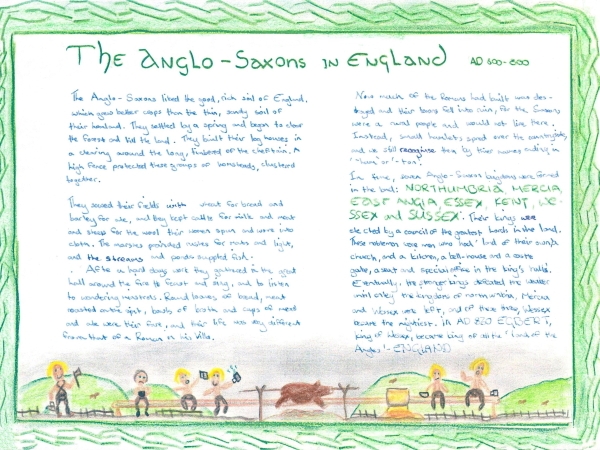 The Anglo-Saxons in England AD 600-800
The Anglo-Saxons liked the good, rich soil of England,
which gave better crops than the thin, sandy soil of
their homeland. They settled by a spring and began to clear
the forest and till the land. They built their log houses in
a clearing around the long, timbered of the chieftain. A
high fence protected these groups of homesteads, clustered
together.
They sowed their fields with wheat for bread and
barley for ale, and they kept cattle for milk and meat
and sheep for the wool their women spun and wove into
cloth. The marshes provided rushes for mats and light,
and the streams and ponds supplied fish.
After a hard days work they gathered in the great
hall around the fire to feast and sing, and to listen
to wandering minstrels. Round loaves of bread, meat
roasted on the spit, bowls of broth and cups of mead
and ale were their fare, and their life was very different
from that of a Roman in his villa.
Now much of the Romans had built was des-
troyed and their towns fell into ruin, for the Saxons
were a rural people and would not live here.
Instead, small hamlets spread over the countryside,
and we still recognise them by their names ending in
"-ham" or "-ton".
In time, seven Anglo-Saxon kingdoms were formed
in the land: NORTHUMBRIA, MERCIA,
EAST ANGLIA, ESSEX, KENT, WE-
SSEX and SUSSEX. Their kings were
elected by a council of the greatest lords in the land.
These noblemen were men who had land of their own,
church, and a kitchen, a bell-house and a castle
gate, a seat and special office in the king's halls.
Eventually, the stronger kings defeated the weaker
until only the kingdoms of Northumbria, Mercia
and Wessex were left, and of these three, Wessex
became the mightiest. In AD 820 EGBERT,
king of Wessex, became king of all the "Land of the
Angles" - ENGLAND